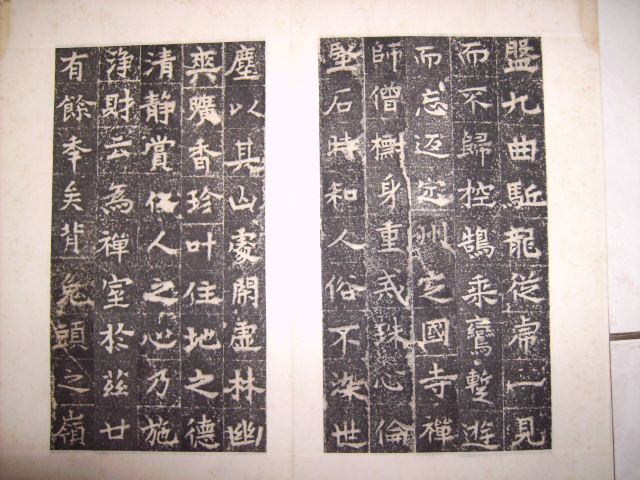 盤九曲駈龍從虎一見
而不歸控鵠乘鸞暫遊
而忘返定州定國寺禪
師僧標身重戒珠心倫
堅石時和人俗不染世
塵以其山處閑虛林幽
爽曠香珍叶住地之德
清静賞任人之心乃施
淨財云為禪室於茲廿
有餘年矣背菟頭之嶺